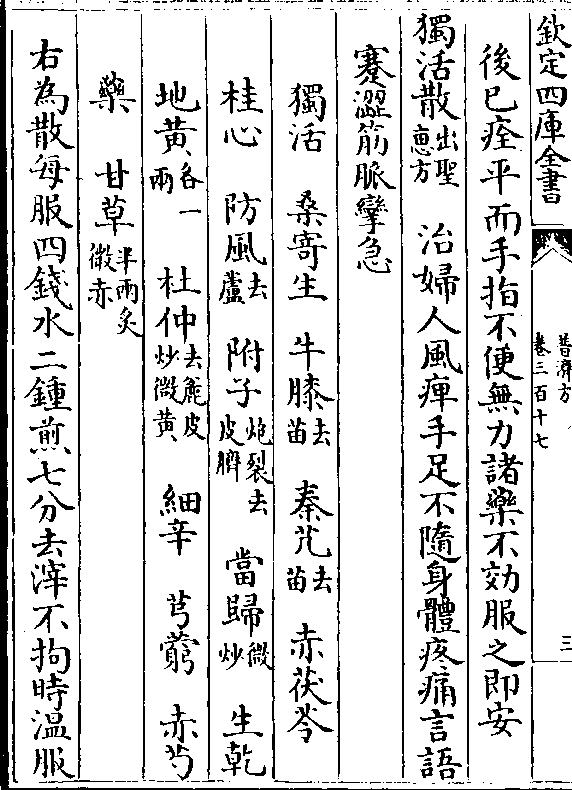 欽定四庫全書
普濟方
卷三百十七
三
後已痊平而手指不便無力諸藥不効服之即安
獨活散出聖惠方 治婦人風痺手足不隨身體疼痛言語
蹇澀筋脈攣急
獨活 桑寄生 牛膝去苗 秦艽去苗 赤茯苓
桂心 防風去蘆 附子炮裂去皮臍 當歸微炒 生乾
地黃各一兩 杜仲去麄皮炒微黃 細辛 芎藭 赤芍
藥 甘草半兩炙微赤
右為散每服四錢水二鍾煎七分去滓不拘時溫服